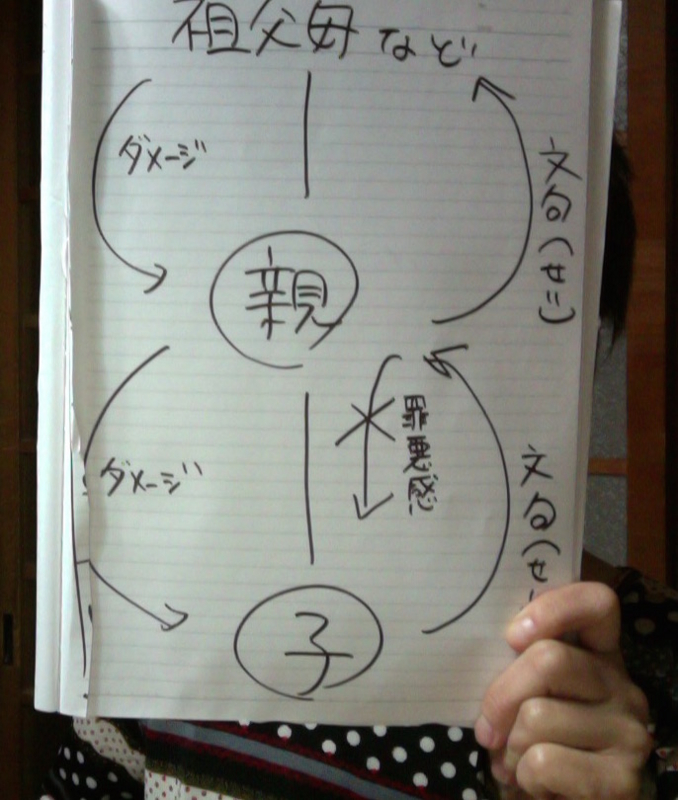 祖父母など
ダメージ
文句(せに)
親
罪悪感
ダメージ
文句(せ
子